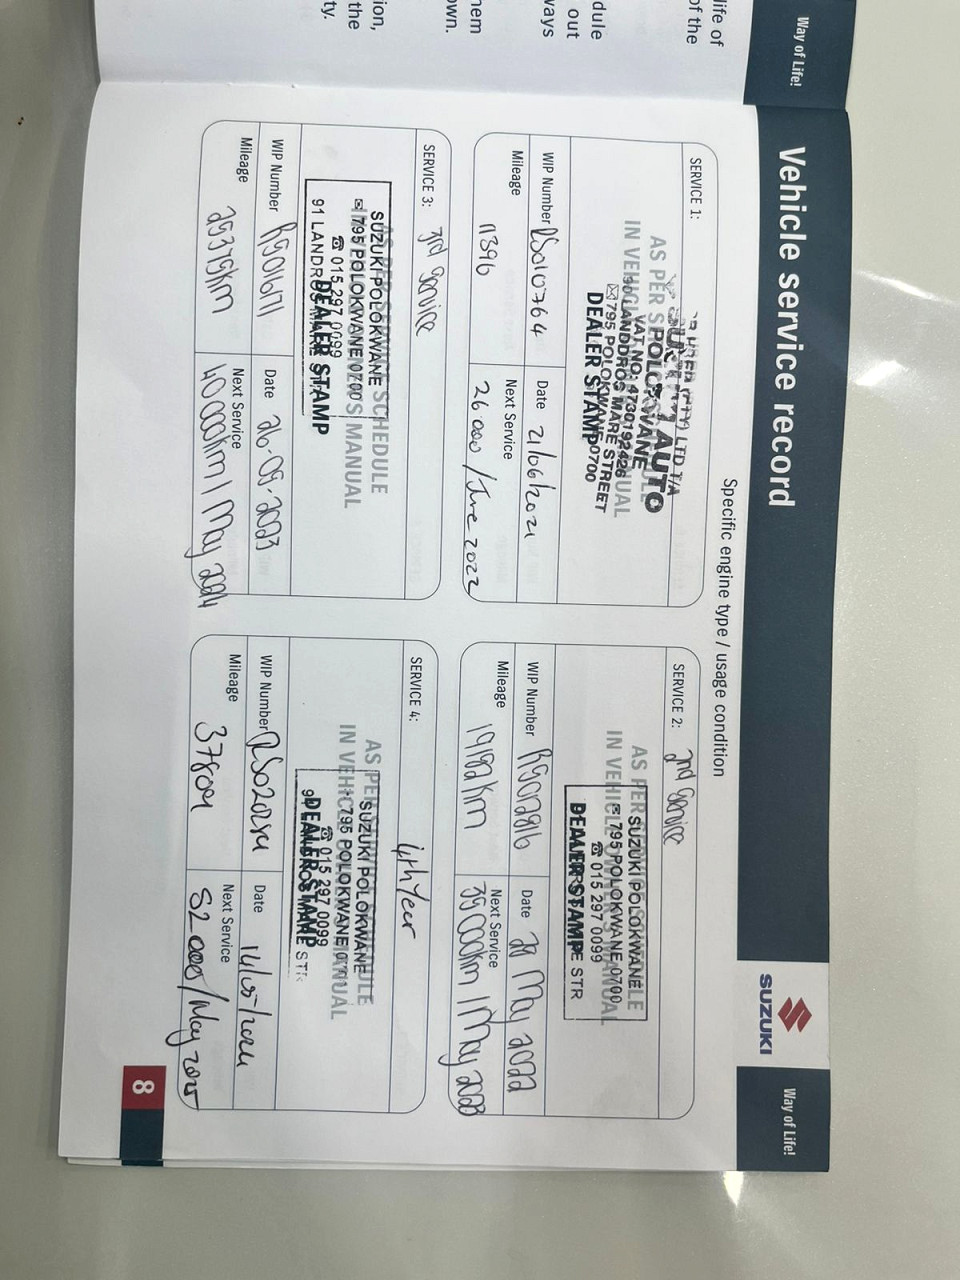 life of
of the
dule
out
ways
hem
own.
ion,
the
ty.
Way of Life!
Vehicle service record
SUZUKI
Way of Life!
Specific engine type / usage condition
SERVICE 1:
AS PER
IN
LTD T/A
AUTO
POLOKWANE
VAT NO: 4730192426
LANDDROS MARE STREET
795 POLOKWANE 0700
DEALER STAMP
WIP Number
Date 21/06/2021
Mileage 11396
Next Service
26 000 / June 2022
SERVICE 2: 2nd Service
AS PER
IN VEHICLE OWNER'S MANUAL
SUZUKI POLOKWANE
795 POLOKWANE 0700
015 297 0099
DEALER STAMP STR
WIP Number
Date May 2022
Mileage 19182km
Next Service
35 000km / May 2023
SERVICE 3: 3rd Service
AS PER SERVICE SCHEDULE
IN VEHICLE OWNER'S MANUAL
SUZUKI POLOKWANE
795 POLOKWANE 0700
015 297 0099
91 LANDROS
DEALER STAMP
WIP Number RS016171
Date 26.05.2023
Mileage 29379km
Next Service
40 000km / May 2024
SERVICE 4: 4th Year
AS PER SERVICE SCHEDULE
IN VEHICLE OWNER'S MANUAL
SUZUKI POLOKWANE
795 POLOKWANE 0700
015 297 0099
DEALER STAMP STR
WIP Number
Date 14/05/2024
Mileage 37804
Next Service
52 000/May 2025
8